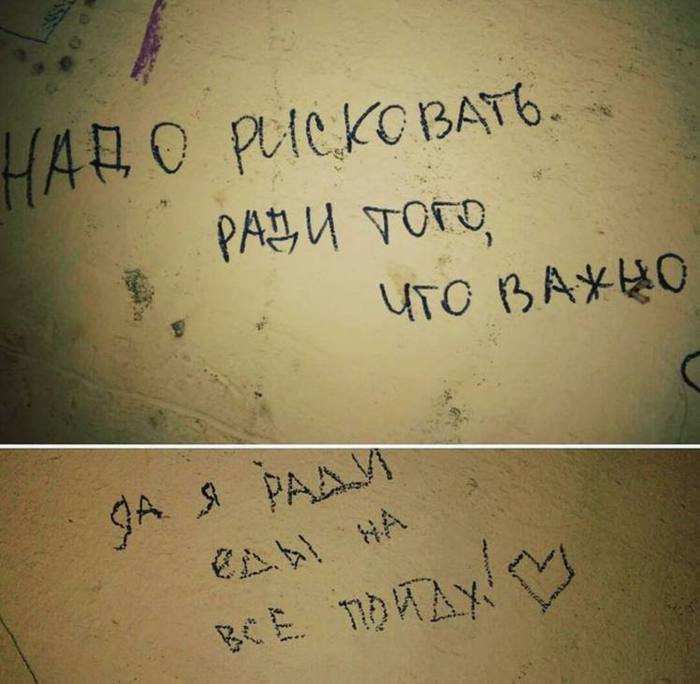 НАДО РИСКОВАТЬ
РАДИ ТОГО,
ЧТО ВАЖНО
ДА Я РАДИ
ЕДЫ НА
ВСЕ ПОЙДУ!